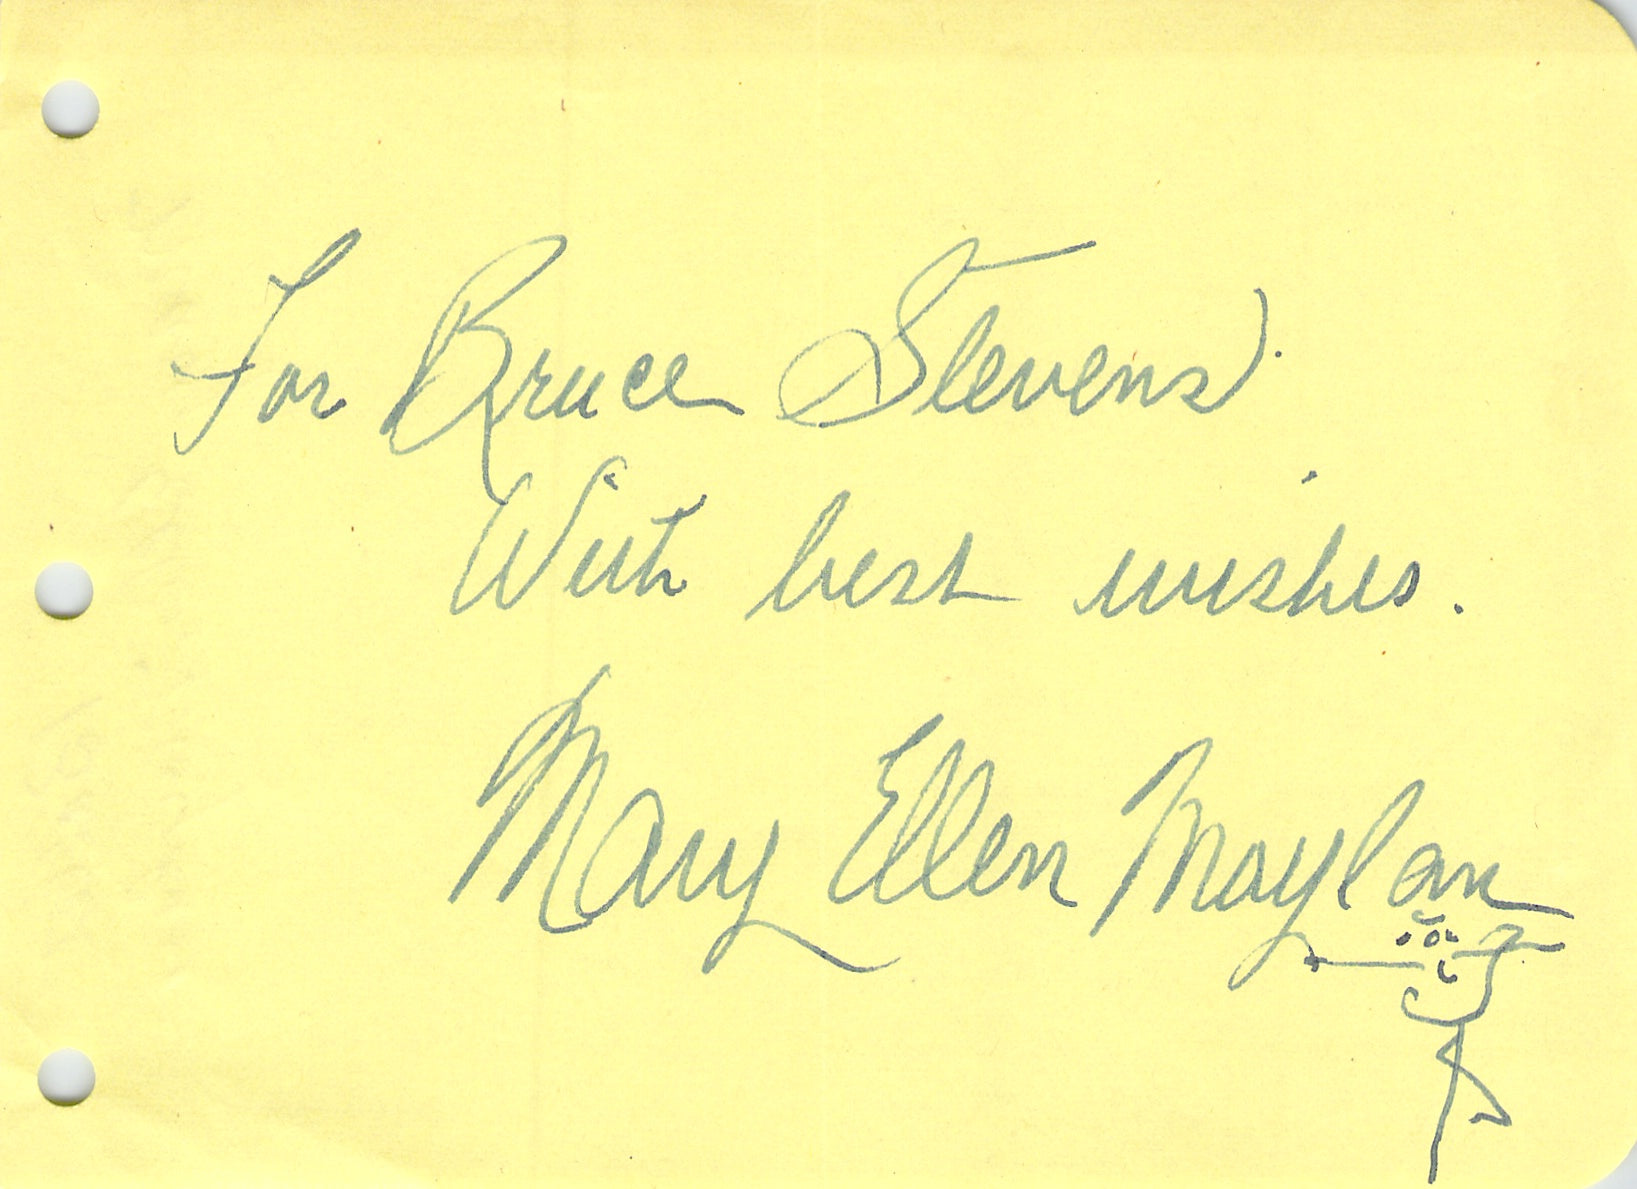 For Bruce Stevens.
With best wishes.
Mary Ellen Moylan